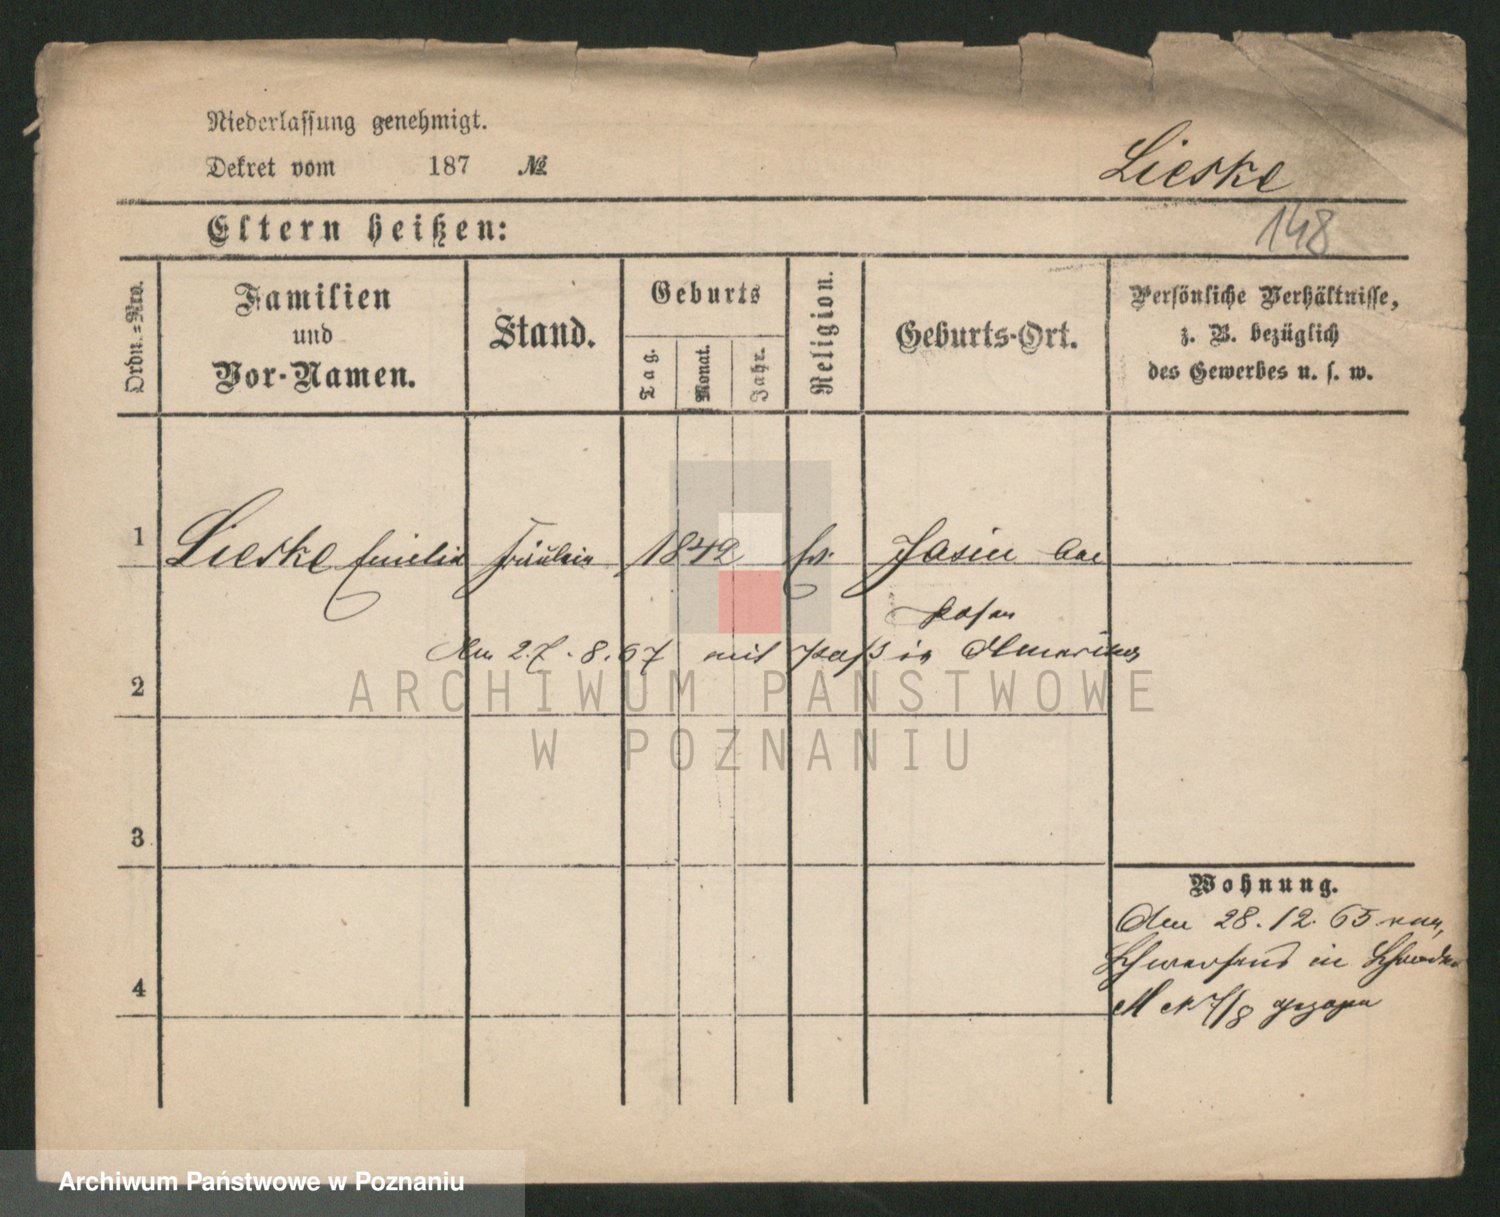 Niederlassung genehmigt.
Dekret vom 187 №
Lieske
148
Eltern heißen:
Ordn.=Nro.
Familien
und
Vor-Namen.
Stand.
Geburts
Tag.
Monat.
Jahr.
Religion.
Geburts-Ort.
Persönliche Verhältnisse,
z. B. bezüglich
des Gewerbes u. s. w.
1 Lieske Emilie Fräulein 1842 Ev. Jasin bei
Posen
Am 27.8.67 mit Paß in Amerika
2
ARCHIWUM PAŃSTWOWE
W POZNANIU
3
Wohnung.
Am 28.12.65 von
Schwersenz in
4
M 7/8 gezogen
Archiwum Państwowe w Poznaniu